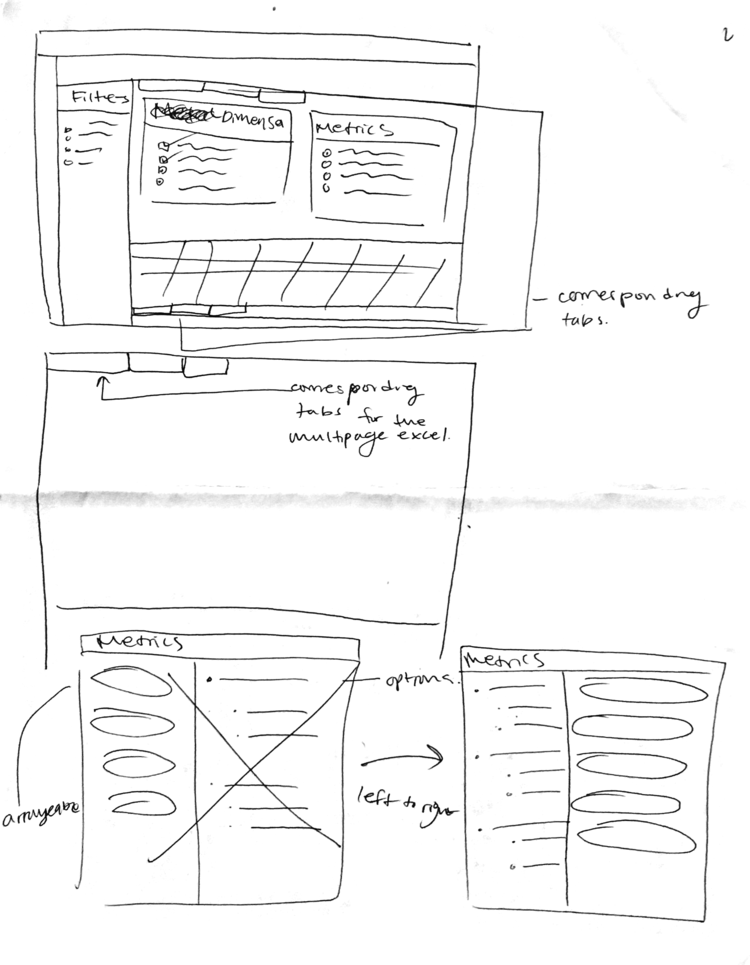 2
Filters
Dimensa
Metrics
corresponding
tabs.
corresponding
tabs for the
multipage excel.
Metrics
optiona.
Metrics
left to right